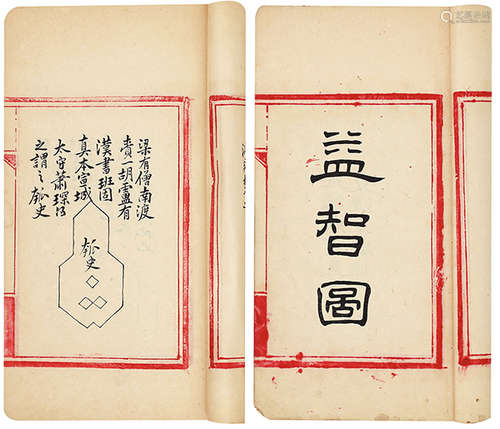 益智圖
梁有僧南渡
賷一胡盧有
漢書班固
真本宣城
太守蕭琛得
之謂之瓠史
瓠史